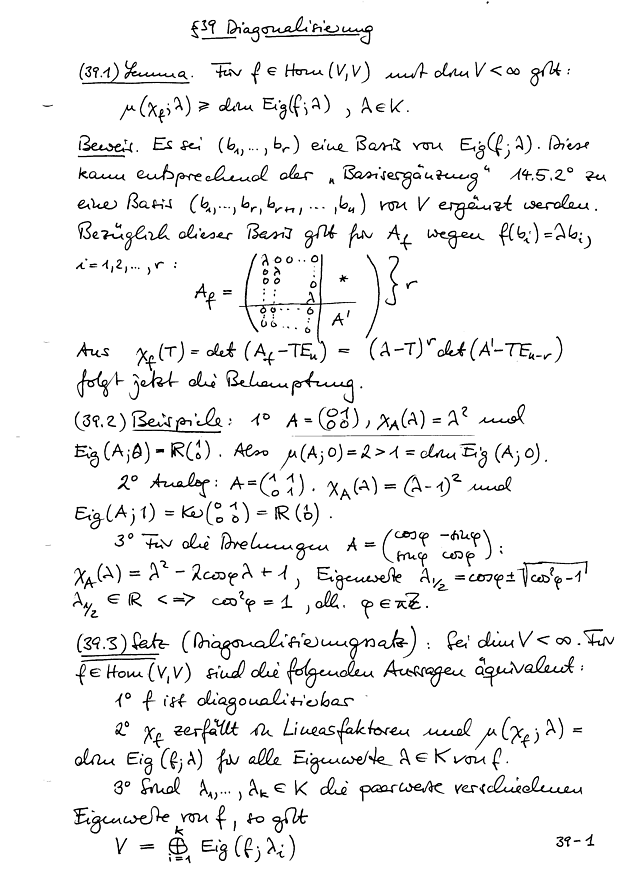 §39 Diagonalisierung
(39.1) Lemma. Für f ∈ Hom(V,V) mit dim V < ∞ gilt:
μ(χ_f; λ) ≥ dim Eig(f; λ) , λ ∈ K.
Beweis. Es sei (b₁,...,b_r) eine Basis von Eig(f; λ). Diese
kann entsprechend der „Basisergänzung" 14.5.2° zu
eine Basis (b₁,...,b_r, b_{r+1}, ..., b_n) von V ergänzt werden.
Bezüglich dieser Basis gilt für A_f wegen f(b_i) = λb_i,
i = 1,2,...,r :
A_f = ( λ 0 0 ·· 0 | * ) } r
0 λ
λ
0 0 ··· 0 | A'
Aus χ_f(T) = det (A_f - TE_n) = (λ-T)^r det(A' - TE_{n-r})
folgt jetzt die Behauptung.
(39.2) Beispiele: 1° A = (0 1 / 0 0), χ_A(λ) = λ² und
Eig(A; 0) = ℝ(1 / 0). Also μ(A; 0) = 2 > 1 = dim Eig(A; 0).
2° Analog: A = (1 1 / 0 1). χ_A(λ) = (λ-1)² und
Eig(A; 1) = Ke(0 1 / 0 0) = ℝ(1 / 0).
3° Für die Drehungen A = (cosφ -sinφ / sinφ cosφ) :
χ_A(λ) = λ² - 2cosφλ + 1, Eigenwerte λ_{1/2} = cosφ ± √(cos²φ - 1)
λ_{1/2} ∈ ℝ <=> cos²φ = 1, d.h. φ ∈ πℤ.
(39.3) Satz (Diagonalisierungssatz) : Sei dim V < ∞. Für
f ∈ Hom(V,V) sind die folgenden Aussagen äquivalent:
1° f ist diagonalisierbar
2° χ_f zerfällt in Linearfaktoren und μ(χ_f; λ) =
dim Eig(f; λ) für alle Eigenwerte λ ∈ K von f.
3° Sind λ₁,...,λ_k ∈ K die paarweise verschiedenen
Eigenwerte von f, so gilt
V = ⊕_{i=1}^k Eig(f; λ_i)
39-1